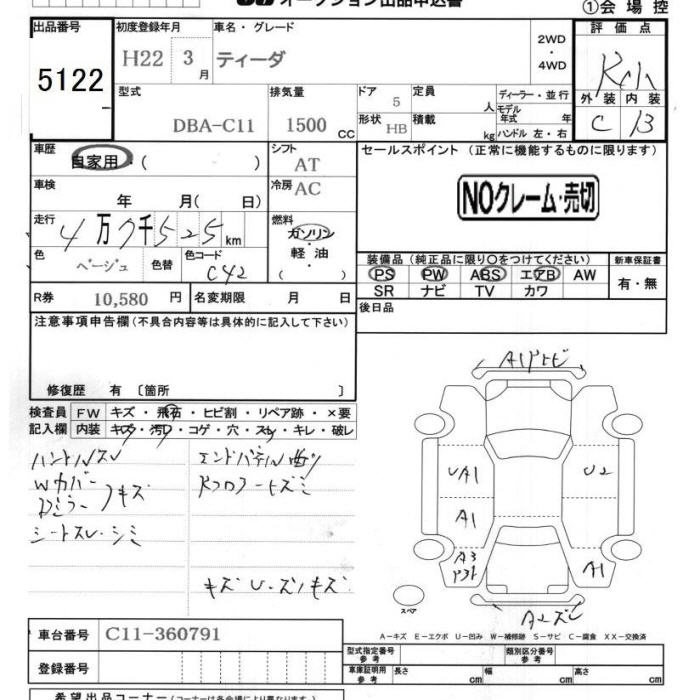 オークション出品申込書
①会場控
出品番号
5122
初度登録年月
H22 3月
車名・グレード
ティーダ
2WD
・
4WD
評価点
型式
DBA-C11
排気量
1500 CC
ドア
5
形状
HB
定員
人
積載
kg
ディーラー・並行
モデル年式 年
ハンドル 左・右
外装 内装
C B
車歴
自家用・( )
シフト
AT
冷房
AC
車検
年 月( 日)
走行
4万7千525km
燃料
ガソリン
・
軽油
( )
色
ベージュ
色替
色コード
C42
R券
10,580 円
名変期限 月 日
セールスポイント (正常に機能するものに限ります)
NOクレーム・売切
装備品 (純正品に限り○をつけてください)
PS PW ABS エアB AW
SR ナビ TV カワ
新車保証書
有・無
後日品
注意事項申告欄(不具合内容等は具体的に記入して下さい)
修復歴 有 〔箇所 〕
検査員
記入欄
FW キズ・飛石・ヒビ割・リペア跡・×要
内装 キズ・汚れ・コゲ・穴・スレ・キレ・破レ
ハンドルスレ
Wカバー
キズ
シートスレ・シミ
キズ U・ズレキズ
UA1
U2
A1
A3
A1
スペア
A-キズ E-エクボ U-凹み W-補修跡 S-サビ C-腐食 XX-交換済
車台番号
C11-360791
登録番号
型式指定番号
参考
類別区分番号
参考
車庫証明用
参考
長さ cm 幅 cm 高さ cm
希望出品コーナー(コーナーは各会場により異なります)